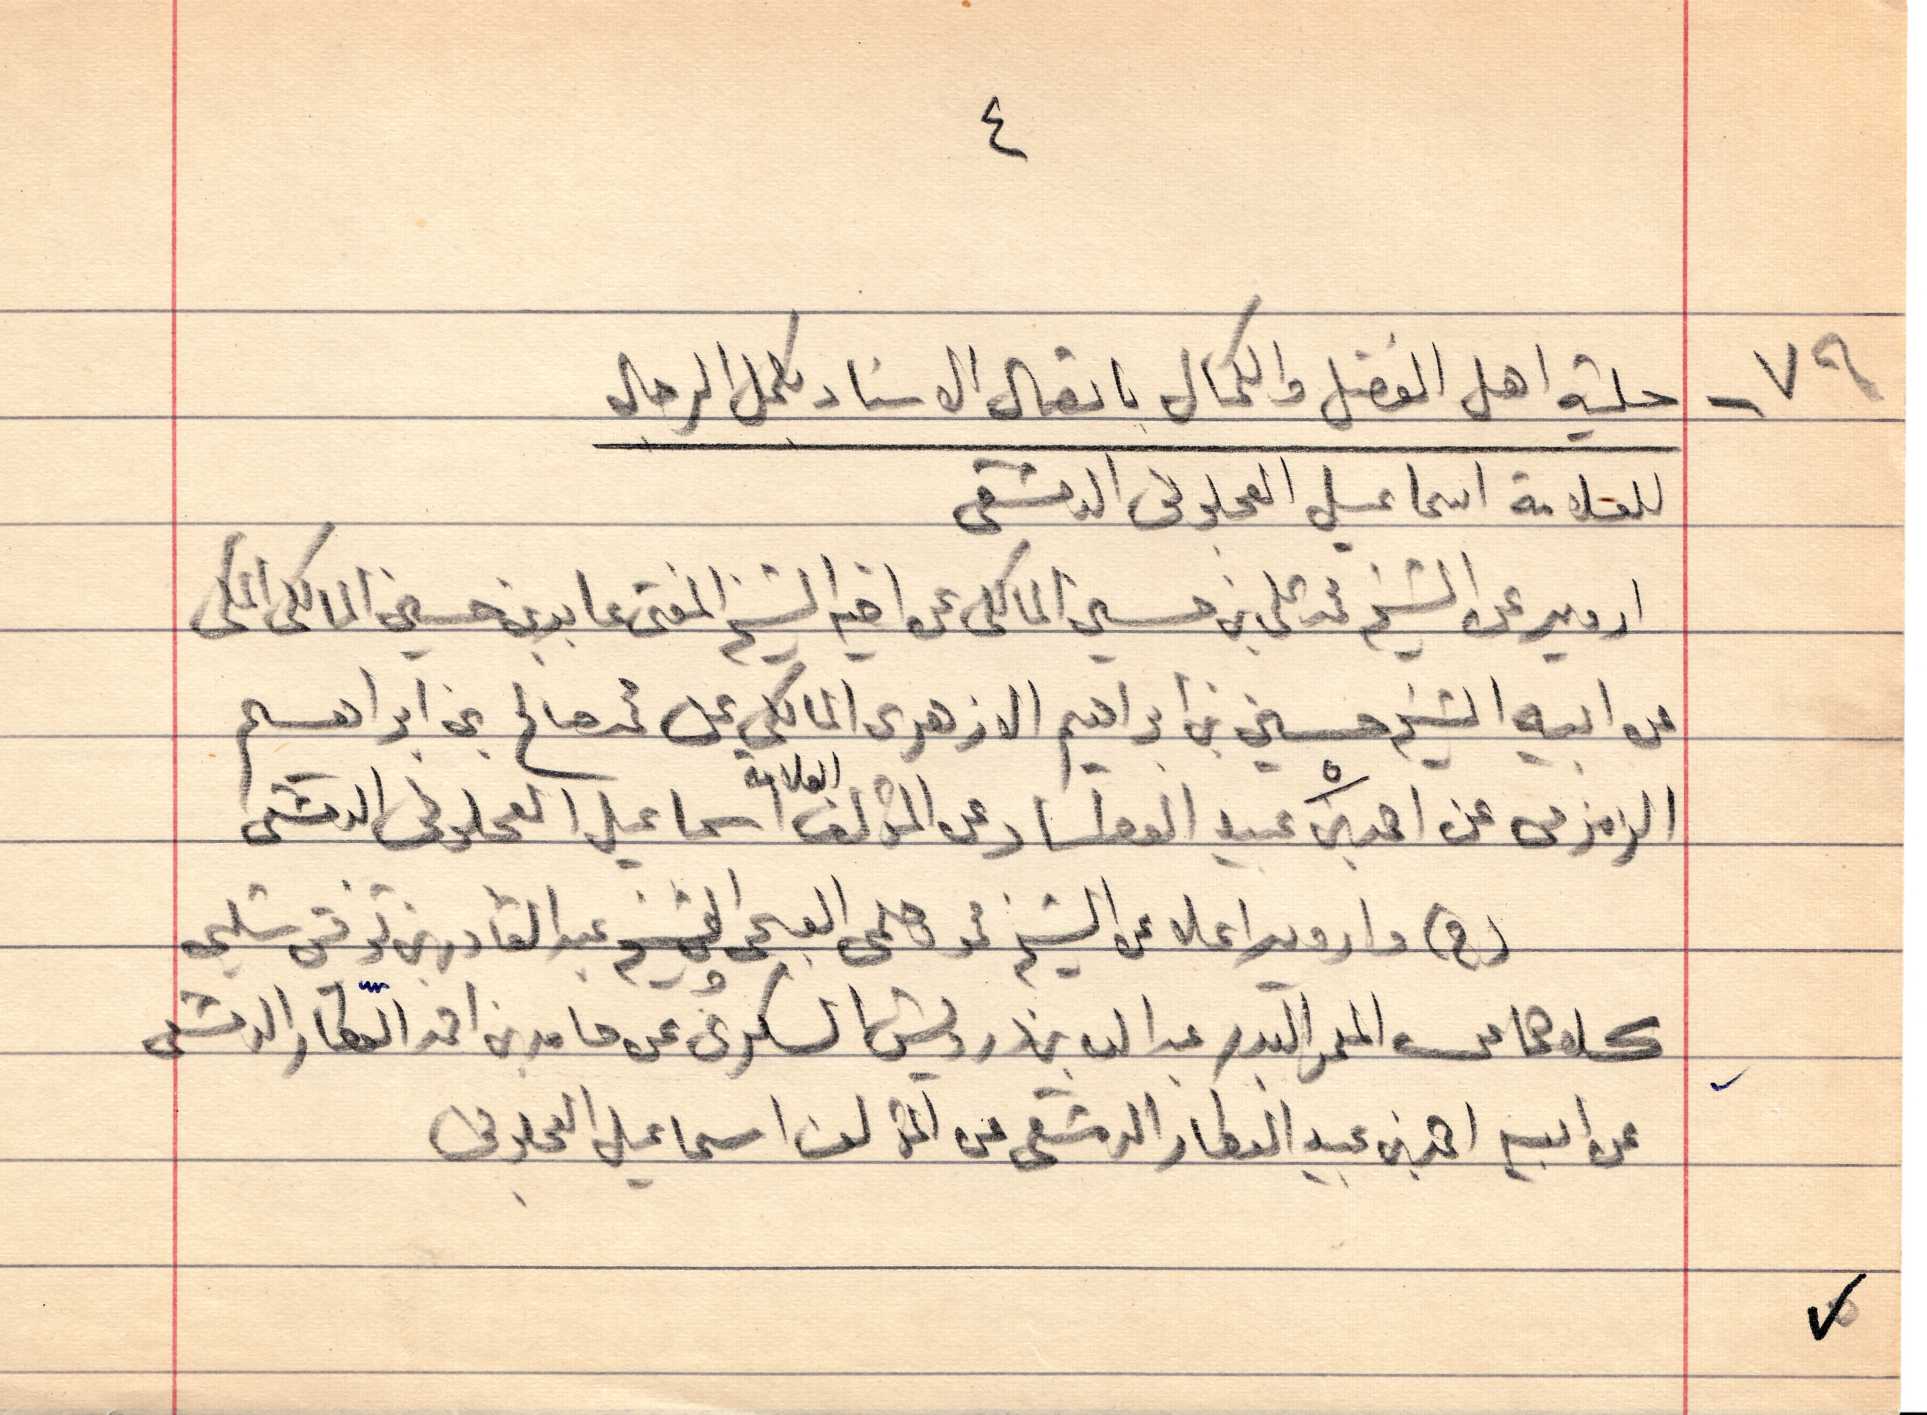 ٤
٧٩ - حلية اهل الفضل والكمال باتصال الاسناد بكمل الرجال
للعلامة اسماعيل العجلوني الدمشقي
ارويه عن الشيخ محمد علي بن حسين المالكي عن اخيه الشيخ المفتي عابد بن حسين المالكي المكي
عن ابيه الشيخ حسين بن ابراهيم الازهري المالكي عن محمد صالح بن ابراهيم
الزمزمي عن احمد بن عبيد العطار عن المؤلف العلامة اسماعيل العجلوني الدمشقي
(ح) وارويه اعلا عن الشيخ محمد العربي الشيخ عبد القادر بن توفيق شلبي
كلاهما عن المعمر البدر عبد الله بن درويش السكري عن حامد بن احمد العطار الدمشقي
عن ابيه احمد بن عبيد العطار الدمشقي عن المؤلف اسماعيل العجلوني